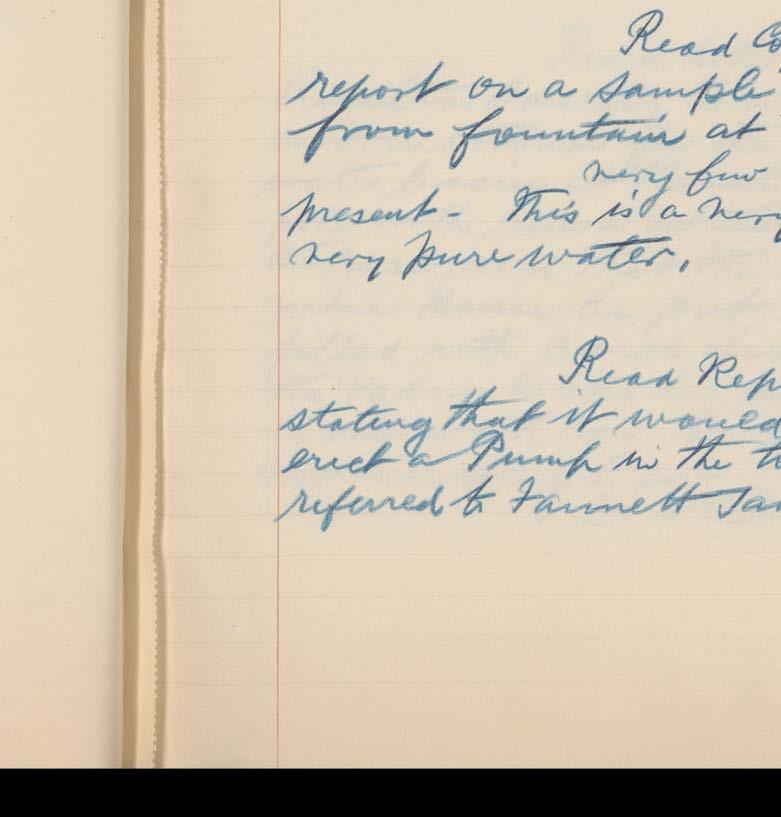 Read Co
report on a sample
from fountain at
very few
present - This is a very
very pure water.
Read Rep
stating that it would
erect a Pump in the t
referred to Fannett Tan